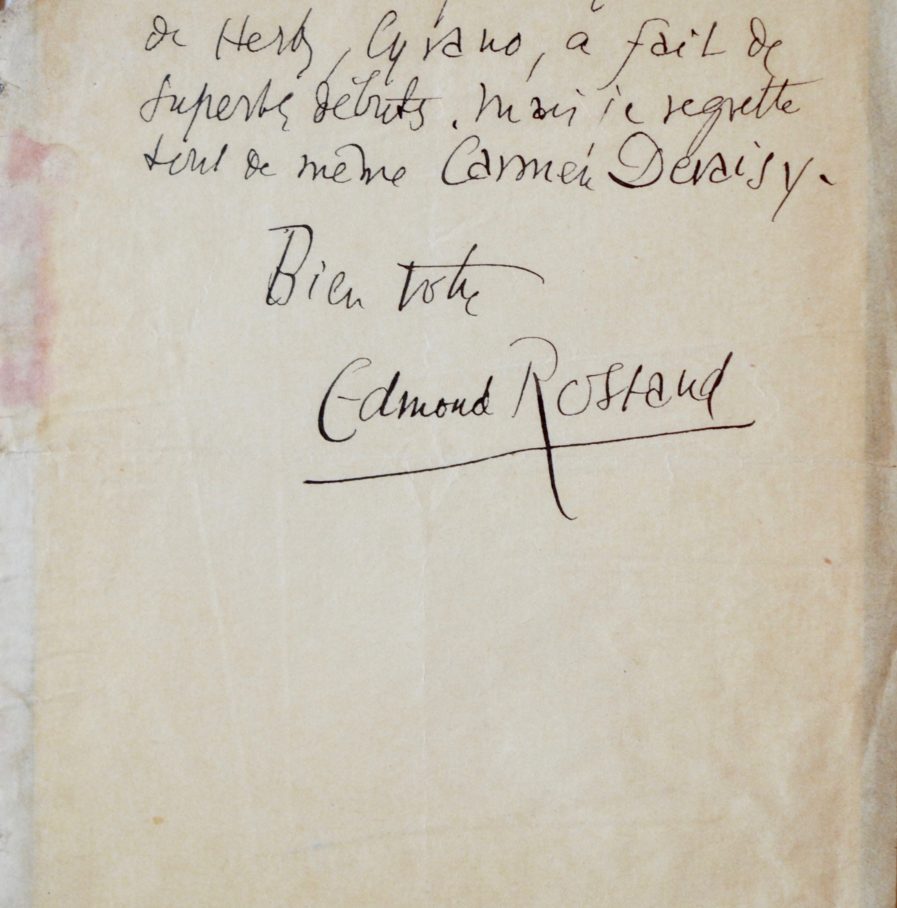 de Hertz, Cyrano, a fait de
superbes débuts. Mais je regrette
tout de même Carmen Deraisy.
Bien votre
Edmond Rostand